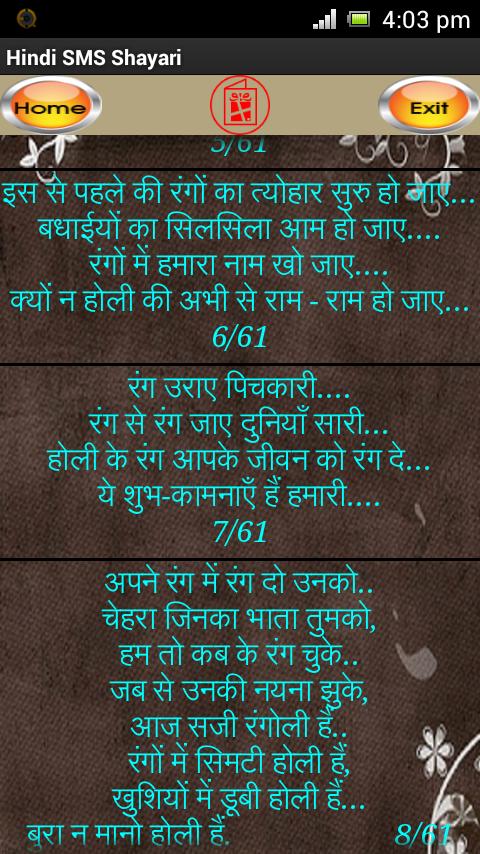 4:03 pm
Hindi SMS Shayari
Home
Exit
5/61
इस से पहले की रंगों का त्योहार सुरु हो जाए...
बधाईयों का सिलसिला आम हो जाए....
रंगों में हमारा नाम खो जाए....
क्यों न होली की अभी से राम - राम हो जाए...
6/61
रंग उराए पिचकारी....
रंग से रंग जाए दुनियाँ सारी...
होली के रंग आपके जीवन को रंग दे...
ये शुभ-कामनाएँ हैं हमारी....
7/61
अपने रंग में रंग दो उनको..
चेहरा जिनका भाता तुमको,
हम तो कब के रंग चुके..
जब से उनकी नयना झुके,
आज सजी रंगोली हैं..
रंगों में सिमटी होली हैं,
खुशियों में डूबी होली हैं...
बुरा न मानो होली हैं. 8/61